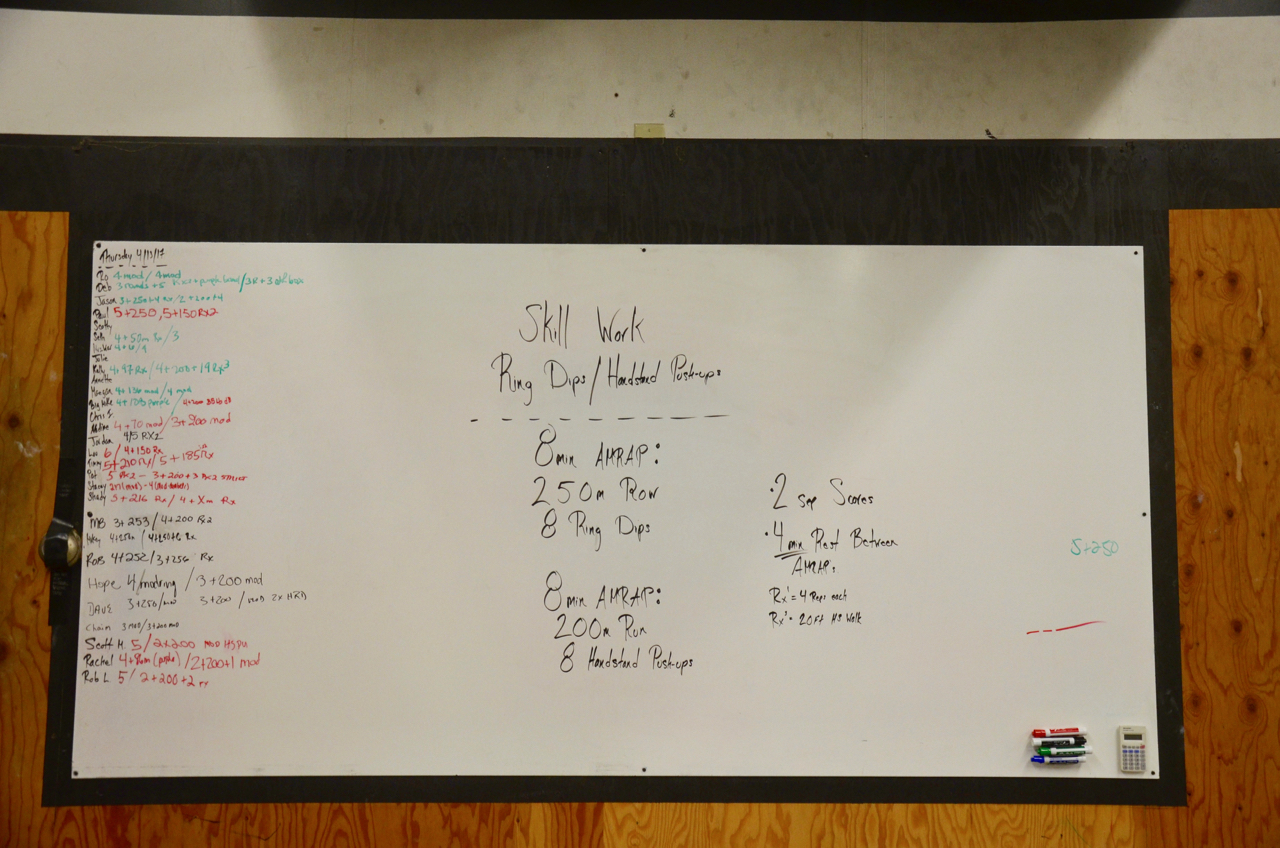 Thursday 4/13/17
4 mod / 4 mod
Deb 3 Rounds + 5 / 3R + 3
Jason 3+250+4 Rx / 2+200+4
Paul 5+250, 5+150 Rx2
Scotty
Seth 4+50m Rx / 3
Julie
Kelly 4+97 Rx / 4+200+1 Rx3
Annette
4+136 mod / 4 mod
4+ purple /
Chris S.
4+70 mod / 3+200 mod
Jordan 4/5 RX2
6 / 4+130 Rx
5+210 Rx / 5+185 Rx
Pat 5 Rx2 - 3+200+3 Rx2
Stacey
Shady 5+216 Rx / 4+Xm Rx
MB 3+253 / 4+200 Rx2
Rob 4+252 / 3+256 Rx
Hope 4/mod ring / 3+200 mod
DAVE 3+250/mod 3+200 / mod 2x HRD
Chain 3 mod / 3+200 mod
Scott M. 5 / 2+200 mod HSPU
Rachel 4+ / 2+200+1 mod
Rob L 5 / 2+200+2 rx
Skill Work
Ring Dips / Handstand Push-ups
8 min AMRAP:
250m Row
8 Ring Dips
8 min AMRAP:
200m Run
8 Handstand Push-ups
• 2 sep Scores
• 4 min Rest Between
AMRAPs
Rx1 = 4 Reps each
Rx3 = 20 Ft HS Walk
5+250